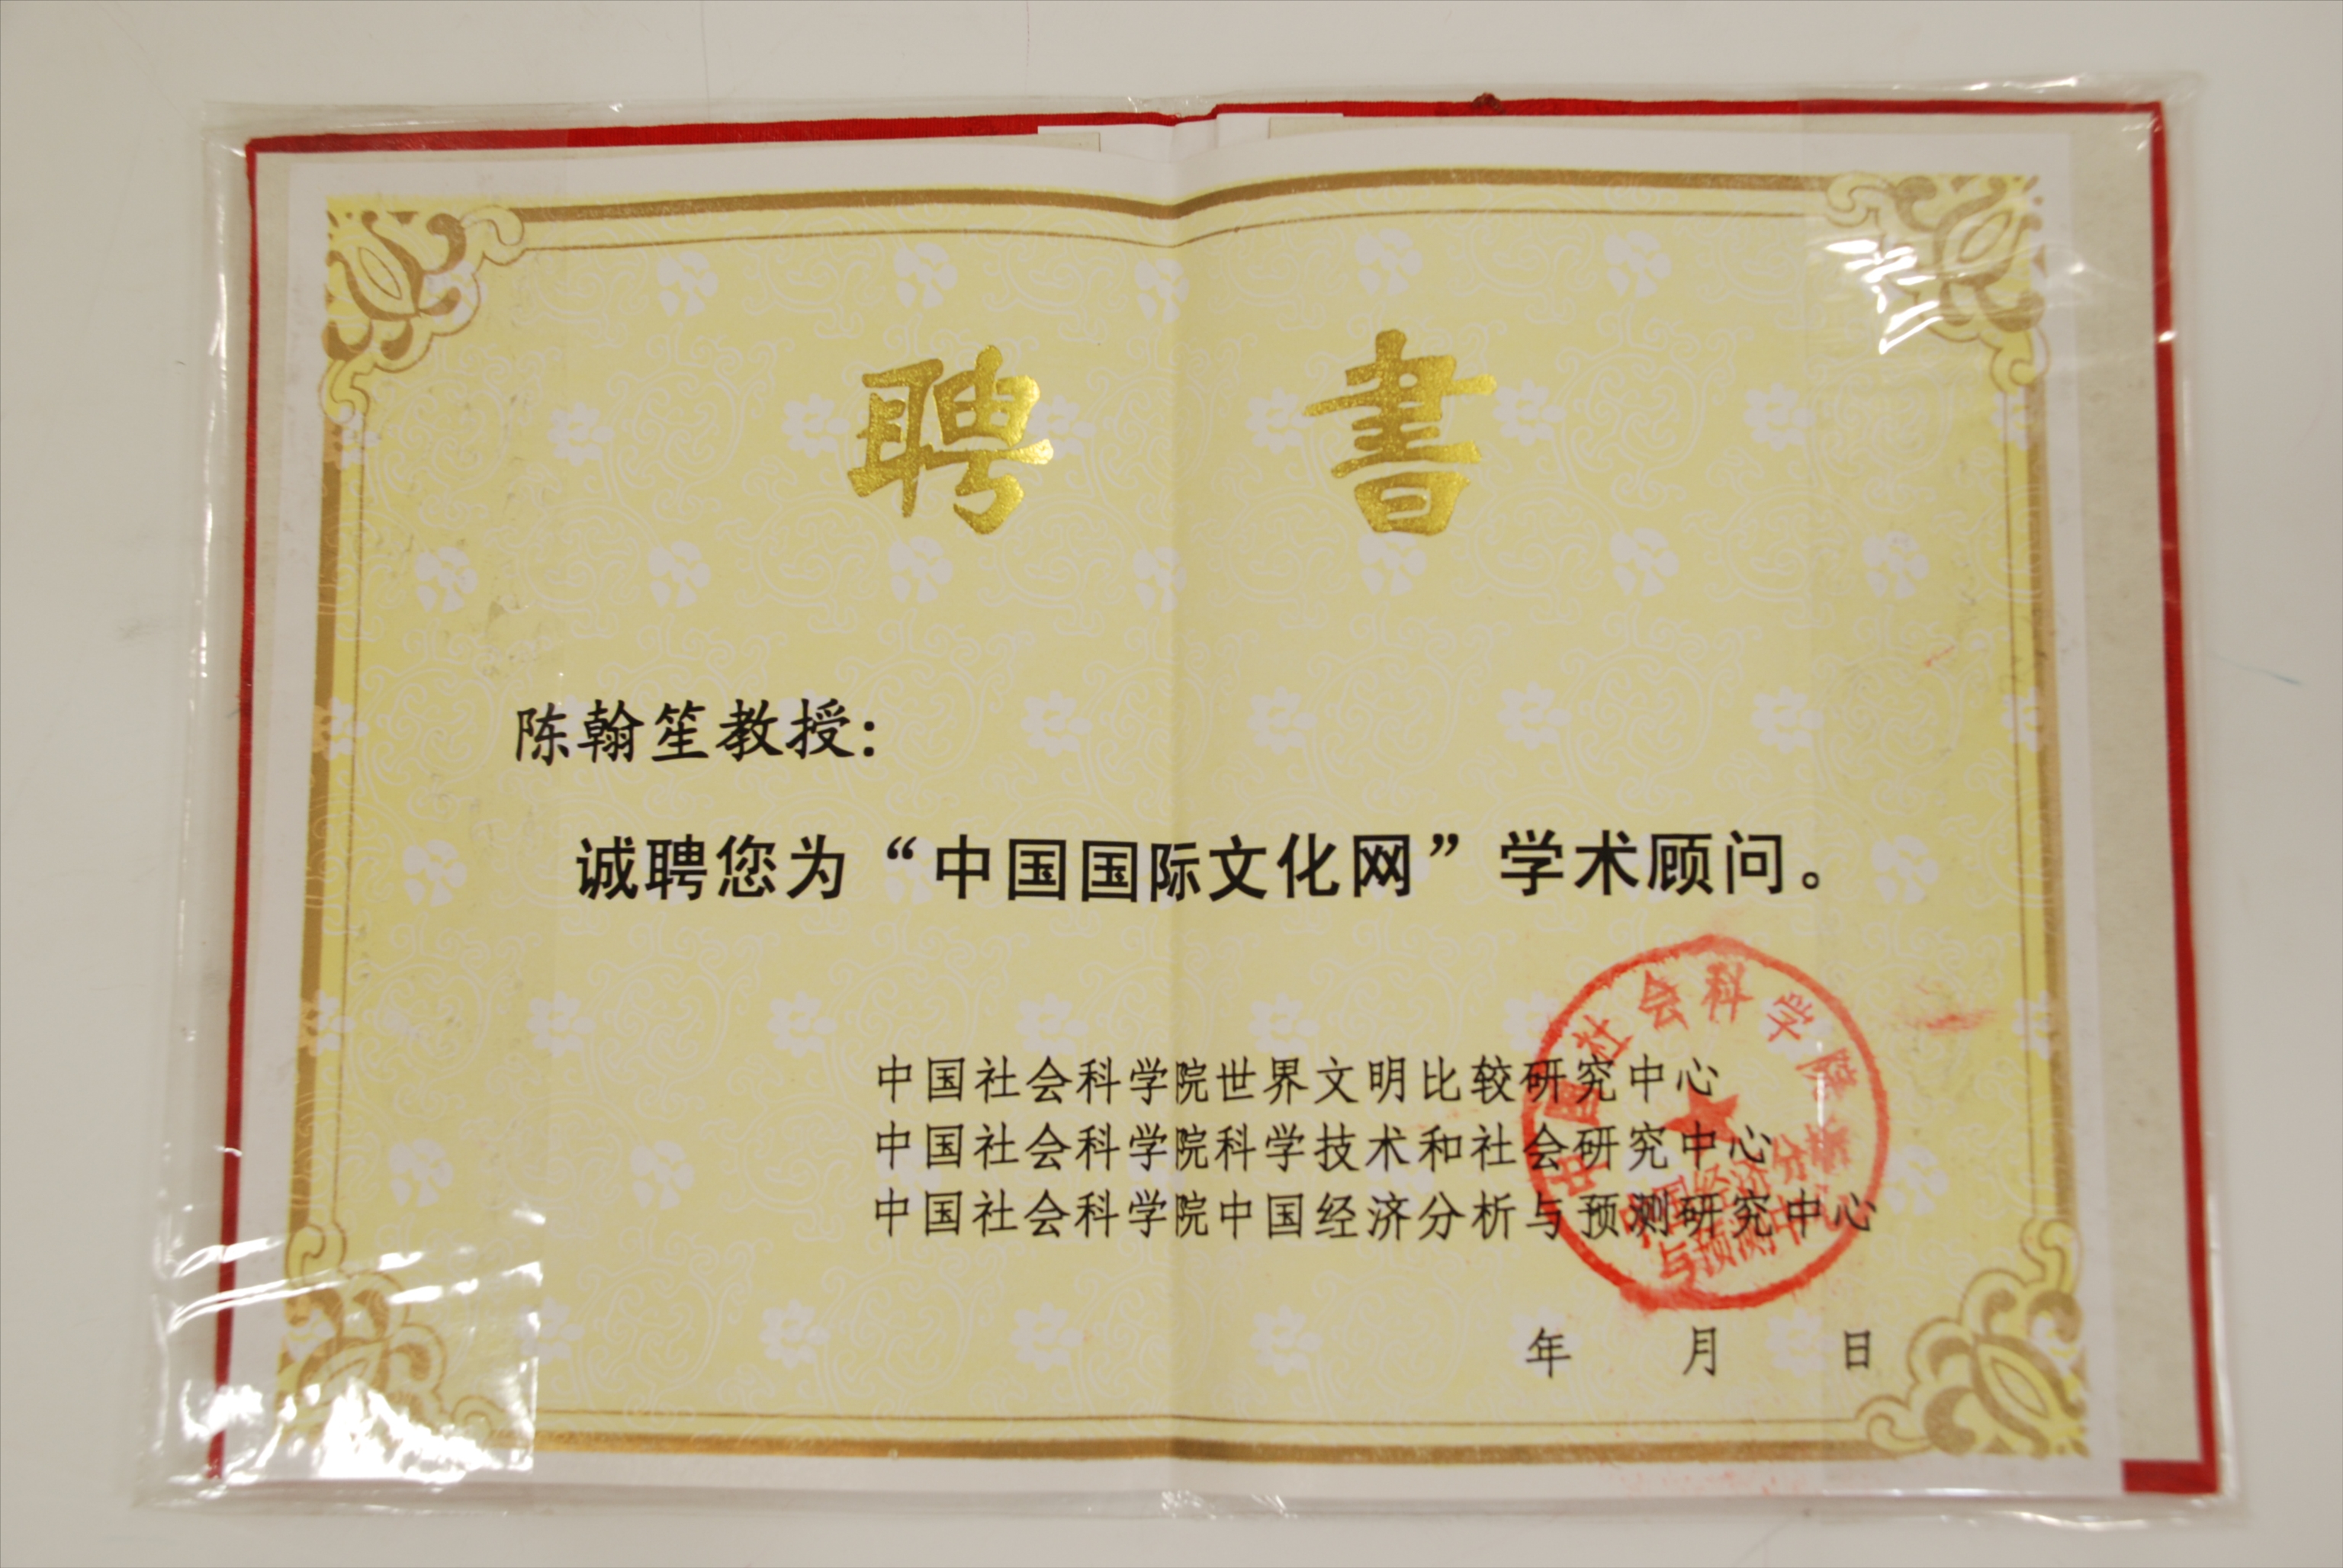 聘書
陈翰笙教授：
诚聘您为“中国国际文化网”学术顾问。
中国社会科学院世界文明比较研究中心
中国社会科学院科学技术和社会研究中心
中国社会科学院中国经济分析与预测研究中心
年 月 日
中国社会科学院
中国经济分
与预测中心